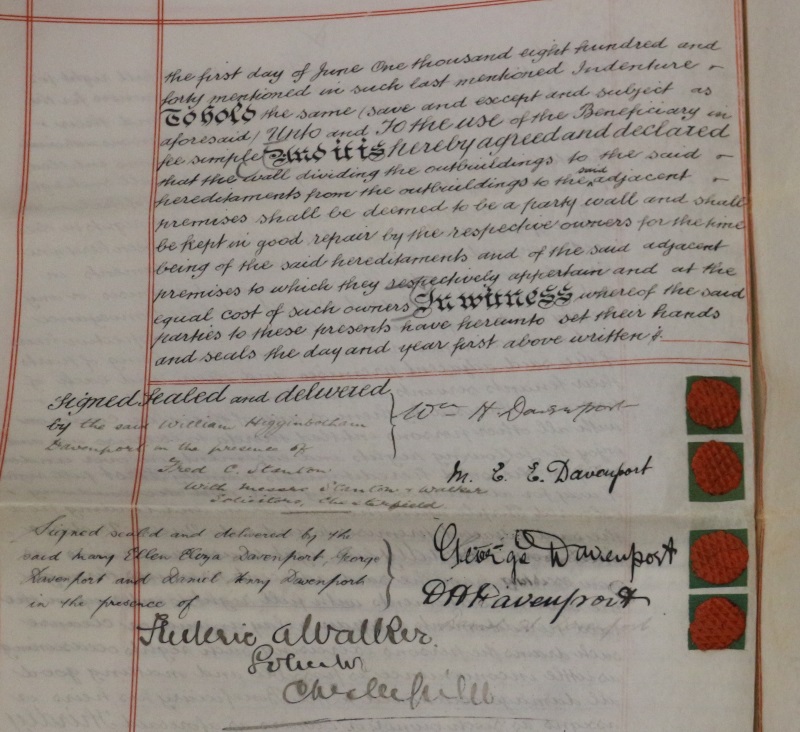 the first day of June One thousand eight hundred and
forty mentioned in such last mentioned Indenture -
To hold the same (save and except and subject as
aforesaid) Unto and To the use of the Beneficiary in
fee simple And it is hereby agreed and declared
that the wall dividing the outbuildings to the said -
hereditaments from the outbuildings to the said adjacent -
premises shall be deemed to be a party wall and shall
be kept in good repair by the respective owners for the time
being of the said hereditaments and of the said adjacent
premises to which they respectively appertain and at the
equal cost of such owners In witness whereof the said
parties to these presents have hereunto set their hands
and seals the day and year first above written
Signed Sealed and delivered
by the said William Higginbotham
Davenport in the presence of
Fred C. Stanton
With Messrs Stanton & Walker
Solicitors, Chesterfield
Wm H Davenport
M. E. E. Davenport
Signed sealed and delivered by the
said Mary Ellen Eliza Davenport, George
Davenport and Daniel Henry Davenport
in the presence of
George Davenport
D H Davenport
Frederic A Walker
Solicitor
Chesterfield